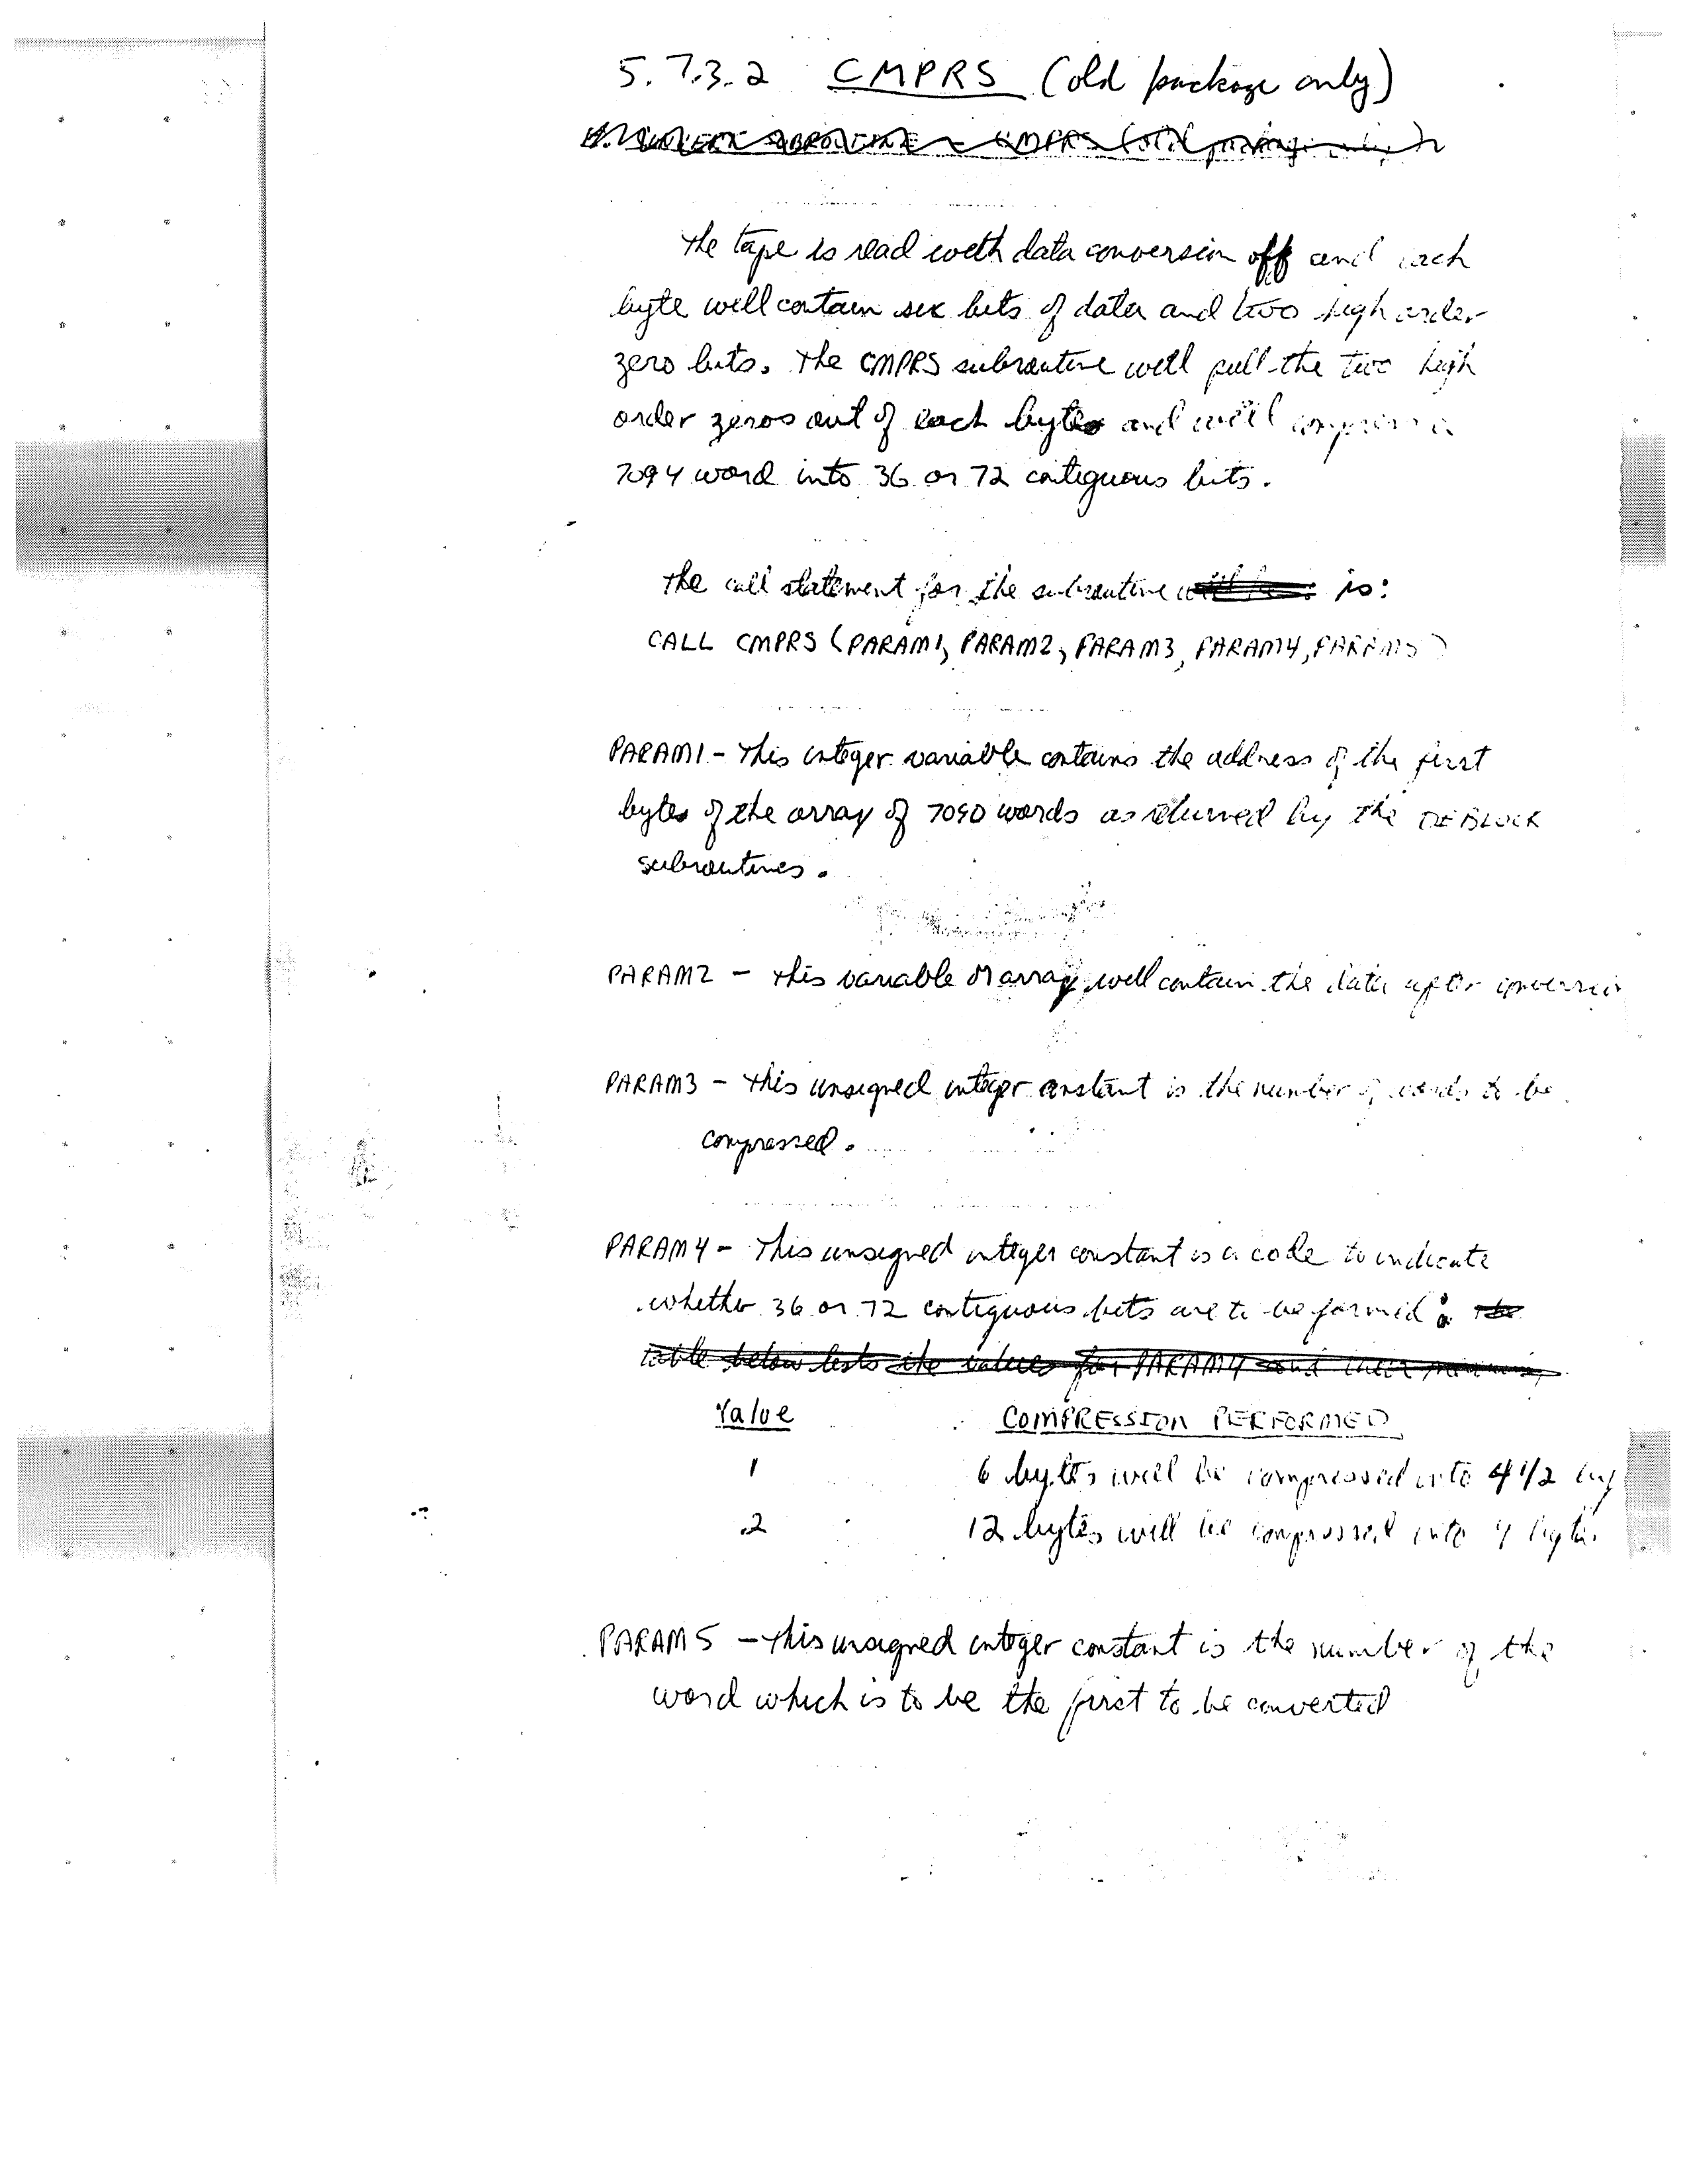 5.7.3.2 CMPRS (old package only)
The tape is read with data conversion off and each
byte will contain six bits of data and two high order
zero bits. The CMPRS subroutine will pull the two high
order zeros out of each byte and will compress a
7094 word into 36 or 72 contiguous bits.
The call statement for the subroutine is:
CALL CMPRS (PARAM1, PARAM2, PARAM3, PARAM4, PARAM5)
PARAM1 - This integer variable contains the address of the first
byte of the array of 7090 words as returned by the DEBLOCK
subroutines.
PARAM2 - This variable or array will contain the data after conversion
PARAM3 - This unsigned integer constant is the number of words to be
compressed.
PARAM4 - This unsigned integer constant is a code to indicate
whether 36 or 72 contiguous bits are to be formed:
table below lists the values for PARAM4 and their
Value COMPRESSION PERFORMED
1 6 bytes will be compressed into 4 1/2 by
2 12 bytes will be compressed into 9 bytes
PARAM5 - This unsigned integer constant is the number of the
word which is to be the first to be converted